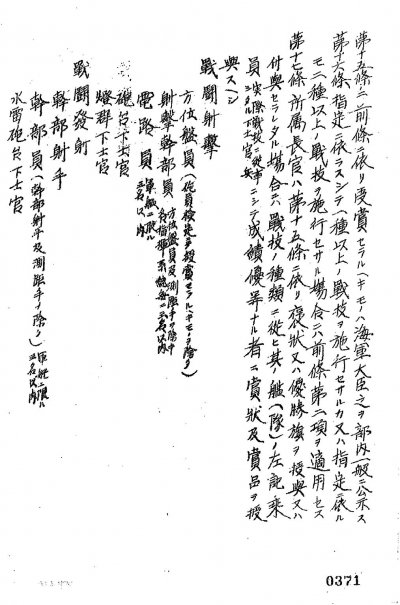 第十五條ニ前條ニ依リ受賞セラルヘキモノハ海軍大臣之ヲ部内一般ニ公示ス
第十六條指定ニ依ラスシテ一種以上ノ戰技ヲ施行セサルカ又ハ指定ニ依ル
モ二種以上ノ戰技ヲ施行セサル場合ニハ前條第二項ヲ適用セス
第十七條所属長官ハ第十五條ニ依リ褒狀又ハ優勝旗ヲ授與又ハ
付與セラレタル場合ニハ戰技ノ種類ニ從ヒ其ノ艦(隊)ノ左記乘
員(実際戰技ニ從事シタル下士官兵)ニシテ成績優等ナル者ニ賞狀及賞品ヲ授
與スヘシ
戰鬪射擊
方位盤員(砲員檢定ヲ授賞セラルヘキモノヲ除ク)
射擊幹部員(方位盤員及測距手ヲ除キ各指揮系統每ニ三名以内
電路員(軍艦ニ限ル三名以内
砲台下士官
燈群下士官
戰鬪發射
幹部射手
幹部員(幹部射手及測距手ヲ除ク)軍艦ニ限ル三名以内
水雷砲台下士官
0371